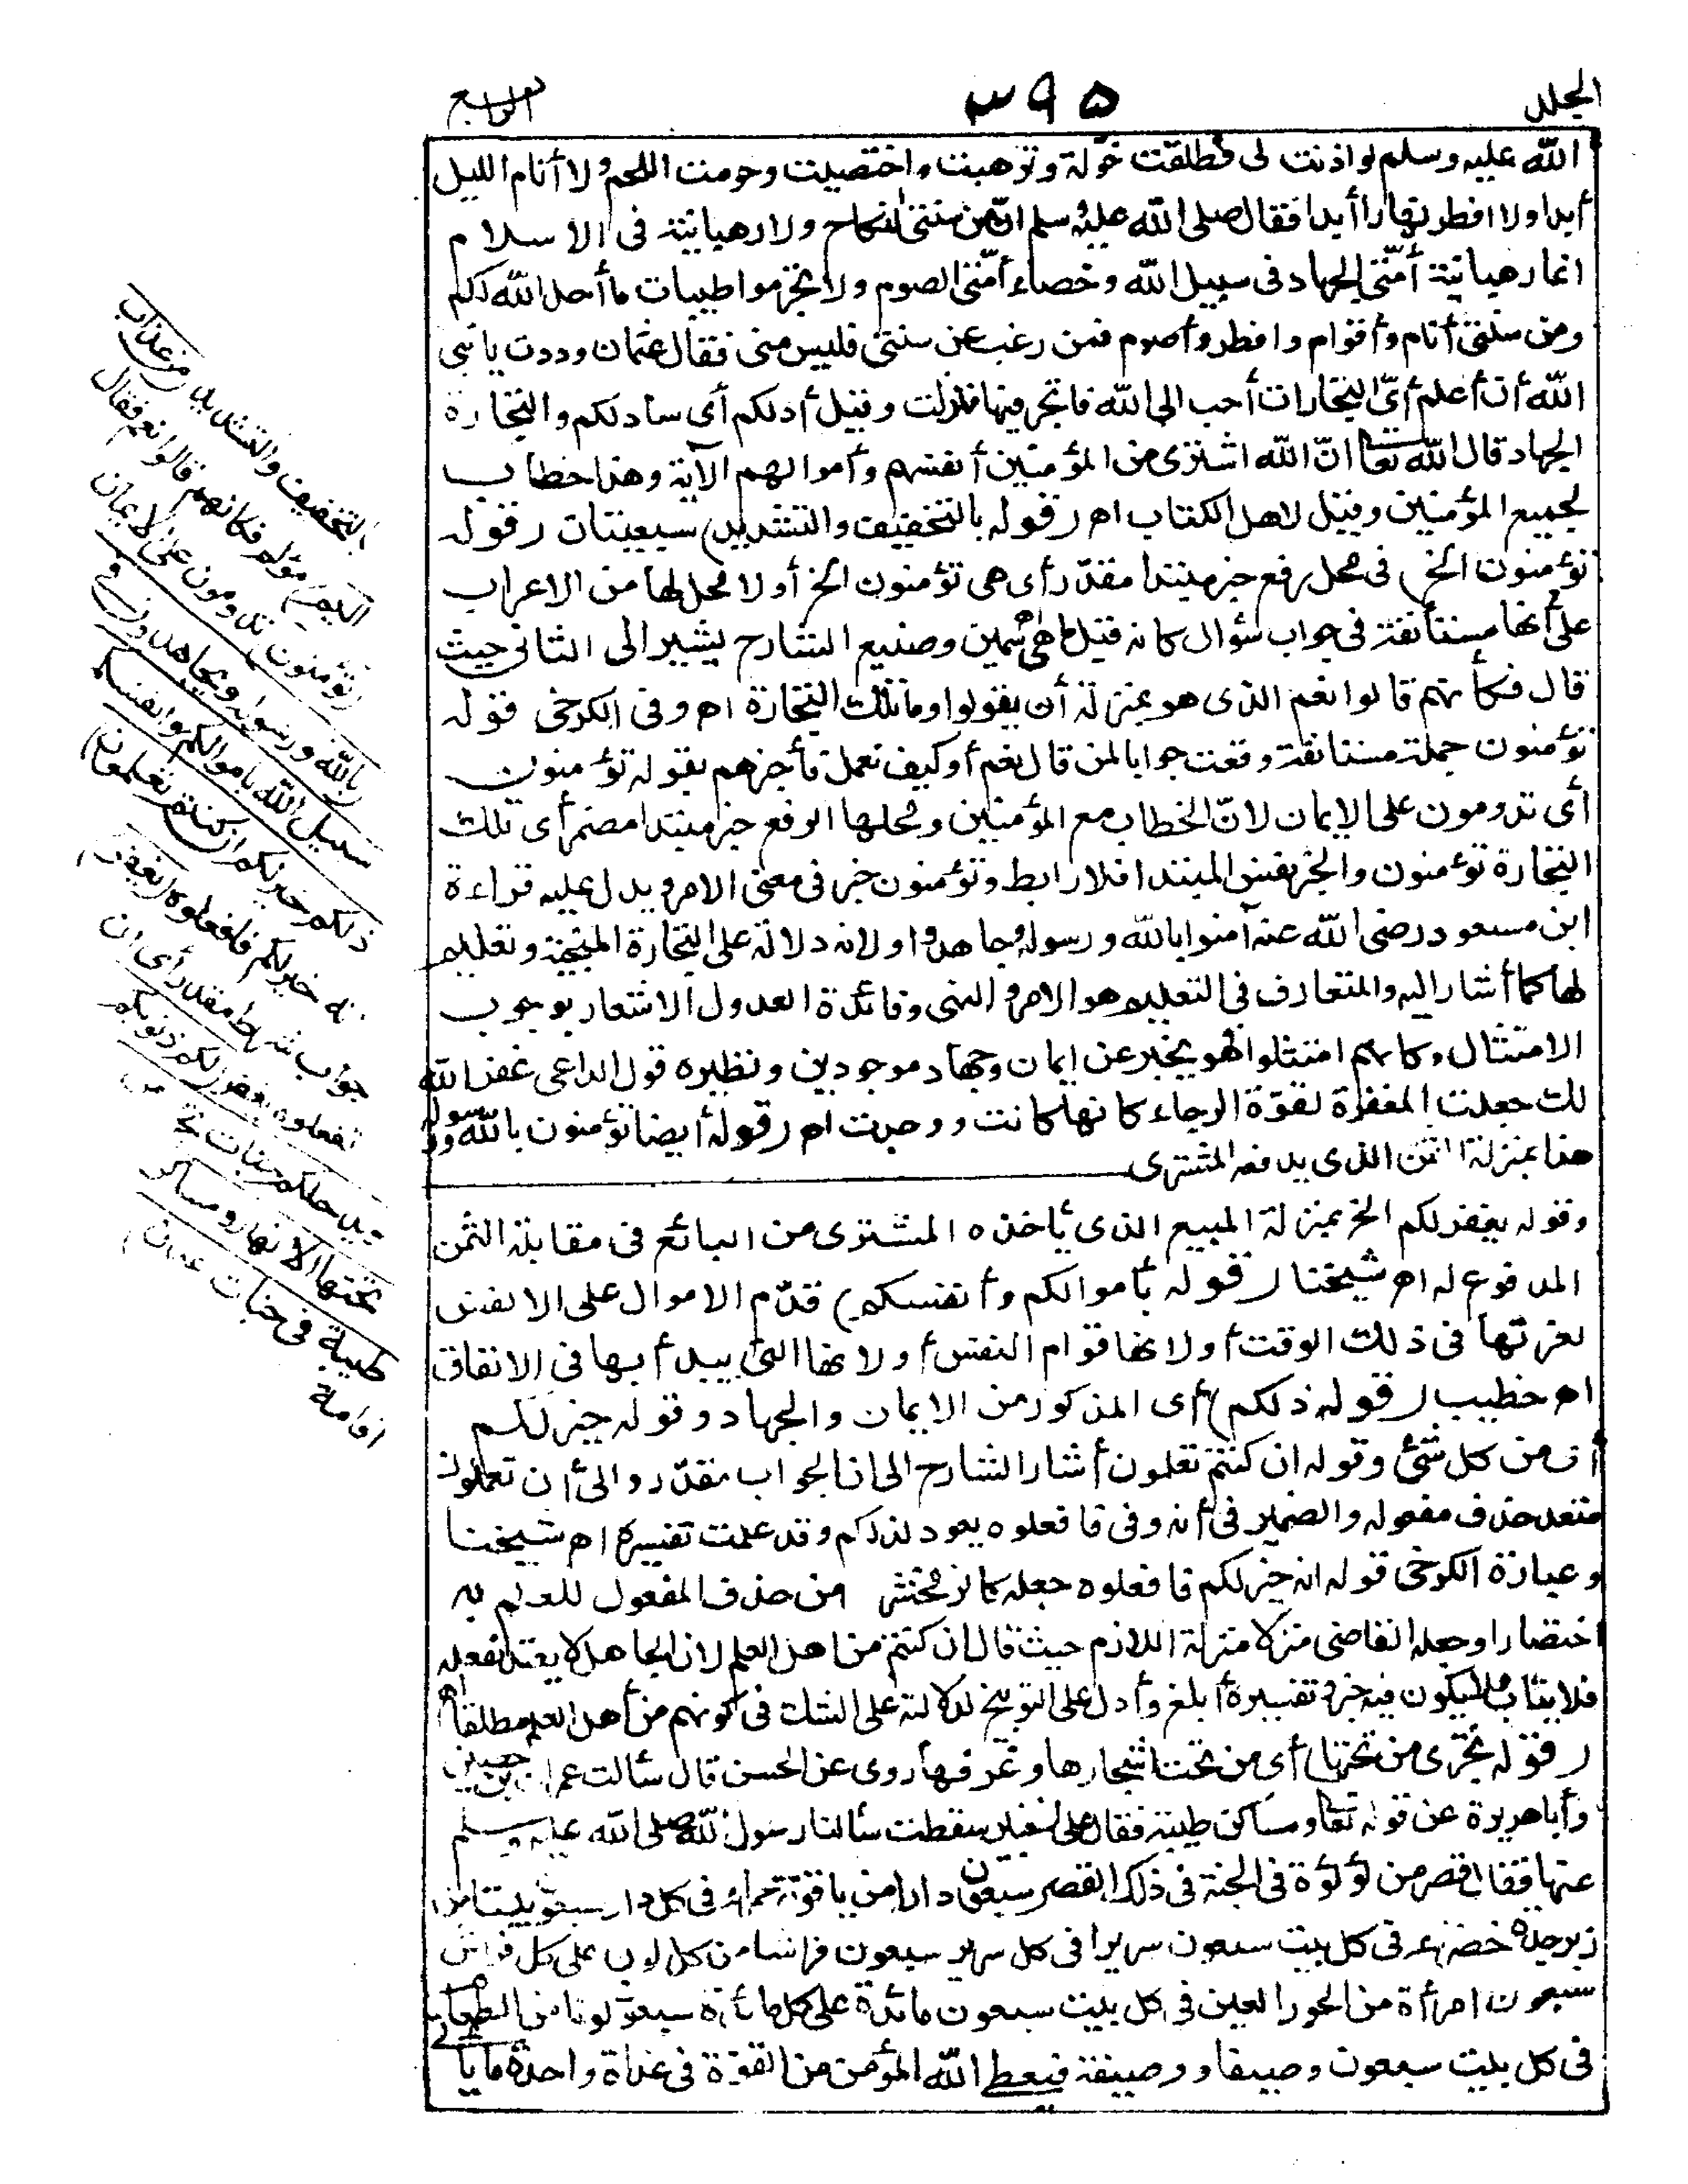 المجلد
٣٩٥
الرابع
الله عليه وسلم لو اذنت لى فطلقت خولة وترهبت واختصيت وحرمت اللحم ولا أنام الليل
أبدا ولا افطر نهارا أبدا فقال صلى الله عليه وسلم ان من سنتى النكاح ولا رهبانية فى الاسلام
انما رهبانية أمتى الجهاد فى سبيل الله وخصاء أمتى الصوم ولا تحرموا طيبات ما أحل الله لكم
ومن سنتى أنام وأقوام وافطر وأصوم فمن رغب عن سنتى فليس منى فقال عثمان وددت يا نبى
الله أن أعلم أىّ التجارات أحب الى الله فاتجر فيها فنزلت وقيل أدلكم أى سادلكم والتجارة
الجهاد قال الله تعا انّ الله اشترى من المؤمنين أنفسهم وأموالهم الآية وهذا خطاب
لجميع المؤمنين وقيل لاهل الكتاب اه (قوله بالتخفيف والتشديد) سبعيتان (قوله
تؤمنون الخ) فى محل رفع خبر مبتدا مقدّر أى هى تؤمنون الخ أو لا محل لها من الاعراب
على أنها مستأنفة فى جواب سؤال كانه قيل ما هى اه سمين وصنيع الشارح يشير الى الثانى حيث
قال فكأنهم قالوا نعم الذى هو بمنزلة أن يقولوا وما تلك التجارة اه وفى الكرخى قوله
تؤمنون جملة مستانفة وقعت جوابا لمن قال نعم أو كيف نعمل فأخبرهم بقوله تؤمنون
أى تدومون على الايمان لانّ الخطاب مع المؤمنين ومحلها الرفع خبر مبتدا مضمر أى تلك
التجارة تؤمنون والخبر نفس المبتدا فلا رابط وتؤمنون خبر فى معنى الامر ويدل عليه قراءة
ابن مسعود رضى الله عنه آمنوا بالله ورسوله وجاهدوا ولانه دلالة على التجارة المنجية وتعليم
لها كما أشار اليه والمتعارف فى التعليم هو الامر والنهى وفائدة العدول الاشعار بوجوب
الامتثال وكانهم امتثلوا فهو يخبر عن ايمان وجهاد موجودين ونظيره قول الداعى غفر الله
لك جعلت المغفرة لقوّة الرجاء كانها كانت ووجدت اه (قوله أيضا تؤمنون بالله ورسوله
هذا بمنزلة الثمن الذى يدفعه المشترى
وقوله يغفر لكم الخ بمنزلة المبيع الذى يأخذه المشترى من البائع فى مقابلة الثمن
المدفوع له اه شيخنا (قوله بأموالكم وأنفسكم) قدّم الاموال على الانفس
لعزتها فى ذلك الوقت أو لانها قوام النفس أو لانها التى يبدأ بها فى الانفاق
اه خطيب (قوله ذلكم) أى المذكور من الايمان والجهاد وقوله خير لكم
أى من كل شئ وقوله ان كنتم تعلمون أشار الشارح الى ان الجواب مقدّر والى أن تعلمون
متعد حذف مفعوله والضمير فى أنه وفى فافعلوه يعود لذلكم وقد علمت تفسيره اه شيخنا
وعبارة الكرخى قوله انه خير لكم فافعلوه جعله كالزمخشرى من حذف المفعول للعلم به
اختصارا وجعله القاضى منزلا منزلة اللازم حيث قال ان كنتم من اهل العلم لان الجاهل لا يعتد بفعله
فلا يثاب فلا يكون فيه خير وتفسيره أبلغ وأدل على التوبيخ لدلالته على الشك فى كونهم من أهل العلم مطلقا اه
(قوله تجرى من تحتها) أى من تحت اشجارها وغرفها روى عن الحسن قال سألت عمران بن حصين
وأبا هريرة عن قوله تعا ومساكن طيبة فقال على الخبير سقطت سألنا رسول الله صلى الله عليه وسلم
عنها فقال قصر من لؤلؤة فى الجنة فى ذلك القصر سبعون دارا من ياقوتة حمراء فى كل دار سبعون بيتا من
زبرجدة خضراء فى كل بيت سبعون سريرا فى كل سرير سبعون فراشا من كل لون على كل فراش
سبعون امرأة من الحور العين فى كل بيت سبعون مائدة على كل مائدة سبعون لونا من الطعام
فى كل بيت سبعون وصيفا ووصيفة فيعطى الله المؤمن من القوّة فى غداة واحدة ما يأتى
بالتخفيف والتشديد (من عذاب
اليم) مؤلم فكانهم قالوا نعم فقال
(تؤمنون) تدومون على الايمان
(بالله ورسوله وتجاهدون فى
سبيل الله باموالكم وانفسكم
ذلكم خير لكم ان كنتم تعلمون)
انه خير لكم فافعلوه (يغفر)
جواب شرط مقدر أى ان
تفعلوه يغفر (لكم ذنوبكم
ويدخلكم جنات تجرى من
تحتها الانهار ومساكن
طيبة فى جنات عدن)
اقامة